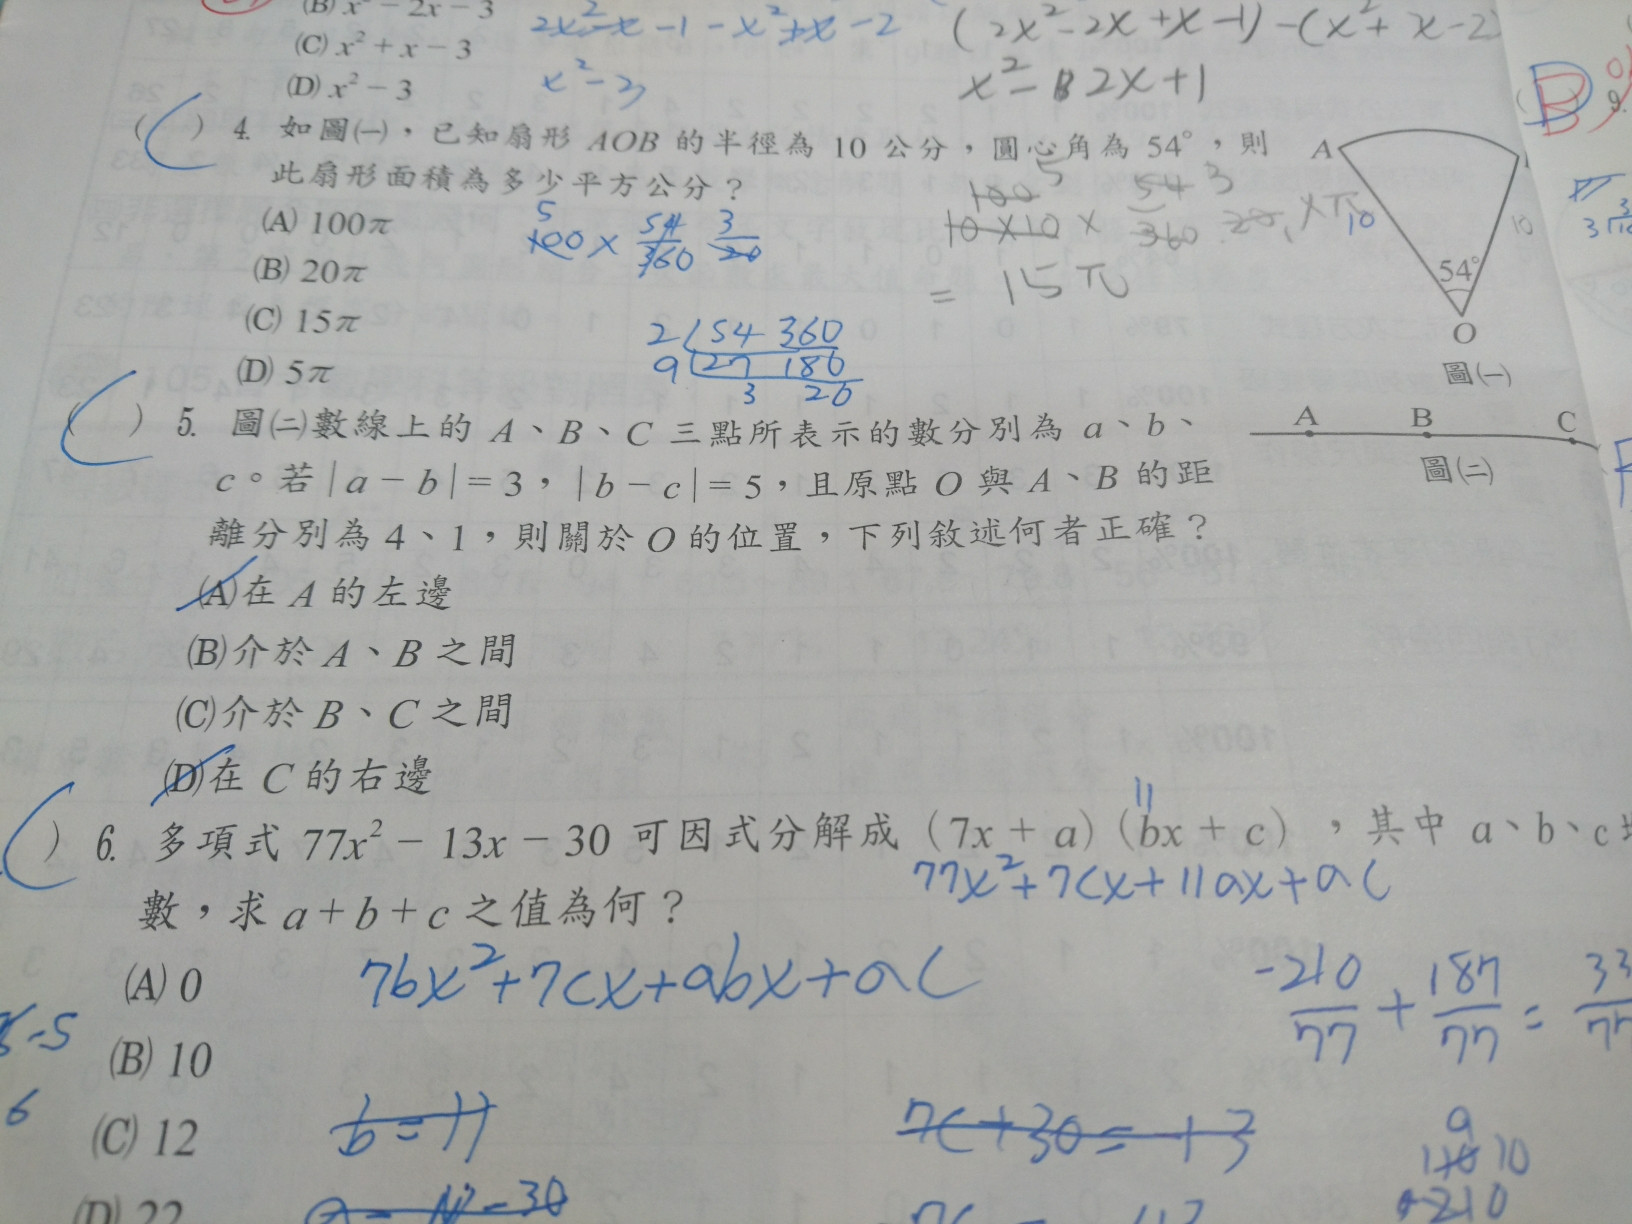 (B) x² − 2x − 3
(C) x² + x − 3
(D) x² − 3
2x² − x − 1 − x² + x − 2
x² − 3
(2x² − 2x + x − 1) − (x² + x − 2)
x² − 2x + 1
( C ) 4. 如圖㈠，已知扇形 AOB 的半徑為 10 公分，圓心角為 54°，則
此扇形面積為多少平方公分？
(A) 100π
(B) 20π
(C) 15π
(D) 5π
5
100 × 54/360 3/20
100 5 54 3
10×10 × 360 20 ×π
= 15π
2 54 360
9 27 180
3 20
A
10
10
54°
O
圖㈠
B
( C ) 5. 圖㈡數線上的 A、B、C 三點所表示的數分別為 a、b、
c。若 |a − b| = 3，|b − c| = 5，且原點 O 與 A、B 的距
離分別為 4、1，則關於 O 的位置，下列敘述何者正確？
(A)在 A 的左邊
(B)介於 A、B 之間
(C)介於 B、C 之間
(D)在 C 的右邊
A B C
圖㈡
( ) 6. 多項式 77x² − 13x − 30 可因式分解成 (7x + a) (bx + c)，其中 a、b、c
數，求 a + b + c 之值為何？
(A) 0
(B) 10
(C) 12
(D) 22
11
77x² + 7cx + 11ax + ac
7bx² + 7cx + abx + ac
-210/77 + 187/77 =
b = 11
7c + 30 = +3
-5
6
10
210